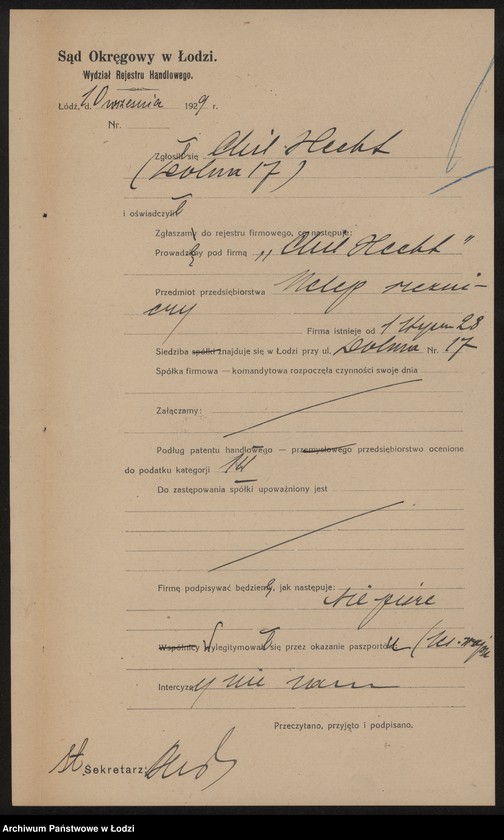 Sąd Okręgowy w Łodzi.
Wydział Rejestru Handlowego.
Łódź, d. 10 września 1929 r.
Nr.
Zgłosił się Chil Hecht
(Dolna 17)
i oświadczył
Zgłaszam do rejestru firmowego, co następuje:
Prowadzę pod firmą „Chil Hecht"
Przedmiot przedsiębiorstwa sklep rzeźni-
czy
Firma istnieje od 1 stycz. 28
Siedziba spółki znajduje się w Łodzi przy ul. Dolna Nr. 17
Spółka firmowa — komandytowa rozpoczęła czynności swoje dnia
Załączamy:
Podług patentu handlowego — przemysłowego przedsiębiorstwo ocenione
do podatku kategorji III
Do zastępowania spółki upoważniony jest
Firmę podpisywać będzie, jak następuje:
nie pisze
Wspólnicy wylegitymował się przez okazanie paszportu
Intercyzy nie mam
Przeczytano, przyjęto i podpisano.
St. Sekretarz:
Archiwum Państwowe w Łodzi